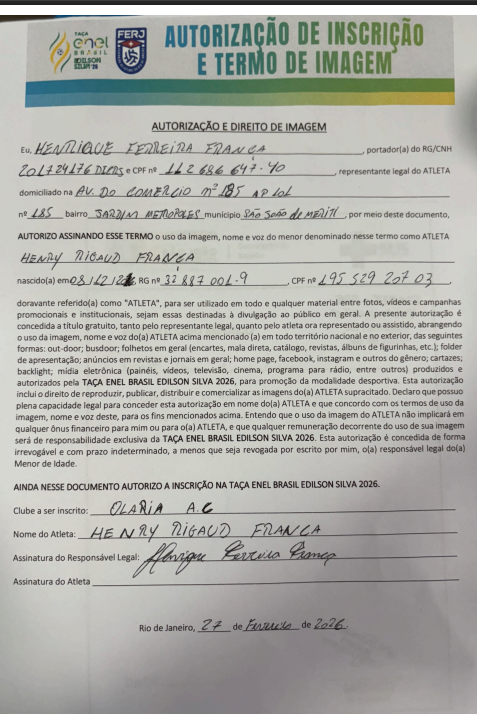 TAÇA
enel
BRASIL
EDILSON
SILVA '26
FERJ
AUTORIZAÇÃO DE INSCRIÇÃO
E TERMO DE IMAGEM
AUTORIZAÇÃO E DIREITO DE IMAGEM
Eu, HENRIQUE FERREIRA FRANCA, portador(a) do RG/CNH
201724176 e CPF nº 112 686 647-40, representante legal do ATLETA
domiciliado na AV. DO COMERCIO nº 185 AP 101
nº 185 bairro JARDIM METROPOLES município São João de MERITI, por meio deste documento,
AUTORIZO ASSINANDO ESSE TERMO o uso da imagem, nome e voz do menor denominado nesse termo como ATLETA
HENRY RIGAUD FRANCA
nascido(a) em 08/12/ , RG nº 32 887 001-9, CPF nº 195 529 207 03,
doravante referido(a) como "ATLETA", para ser utilizado em todo e qualquer material entre fotos, vídeos e campanhas
promocionais e institucionais, sejam essas destinadas à divulgação ao público em geral. A presente autorização é
concedida a título gratuito, tanto pelo representante legal, quanto pelo atleta ora representado ou assistido, abrangendo
o uso da imagem, nome e voz do(a) ATLETA acima mencionado (a) em todo território nacional e no exterior, das seguintes
formas: out-door; busdoor; folhetos em geral (encartes, mala direta, catálogo, revistas, álbuns de figurinhas, etc.); folder
de apresentação; anúncios em revistas e jornais em geral; home page, facebook, instagram e outros do gênero; cartazes;
backlight; mídia eletrônica (painéis, vídeos, televisão, cinema, programa para rádio, entre outros) produzidos e
autorizados pela TAÇA ENEL BRASIL EDILSON SILVA 2026, para promoção da modalidade desportiva. Esta autorização
inclui o direito de reproduzir, publicar, distribuir e comercializar as imagens do(a) ATLETA supracitado. Declaro que possuo
plena capacidade legal para conceder esta autorização em nome do(a) ATLETA e que concordo com os termos de uso da
imagem, nome e voz deste, para os fins mencionados acima. Entendo que o uso da imagem do ATLETA não implicará em
qualquer ônus financeiro para mim ou para o(a) ATLETA, e que qualquer remuneração decorrente do uso de sua imagem
será de responsabilidade exclusiva da TAÇA ENEL BRASIL EDILSON SILVA 2026. Esta autorização é concedida de forma
irrevogável e com prazo indeterminado, a menos que seja revogada por escrito por mim, o(a) responsável legal do(a)
Menor de Idade.
AINDA NESSE DOCUMENTO AUTORIZO A INSCRIÇÃO NA TAÇA ENEL BRASIL EDILSON SILVA 2026.
Clube a ser inscrito: OLARIA A.C
Nome do Atleta: HENRY RIGAUD FRANCA
Assinatura do Responsável Legal: Henrique Ferreira Franca
Assinatura do Atleta
Rio de Janeiro, 27 de Fevereiro de 2026